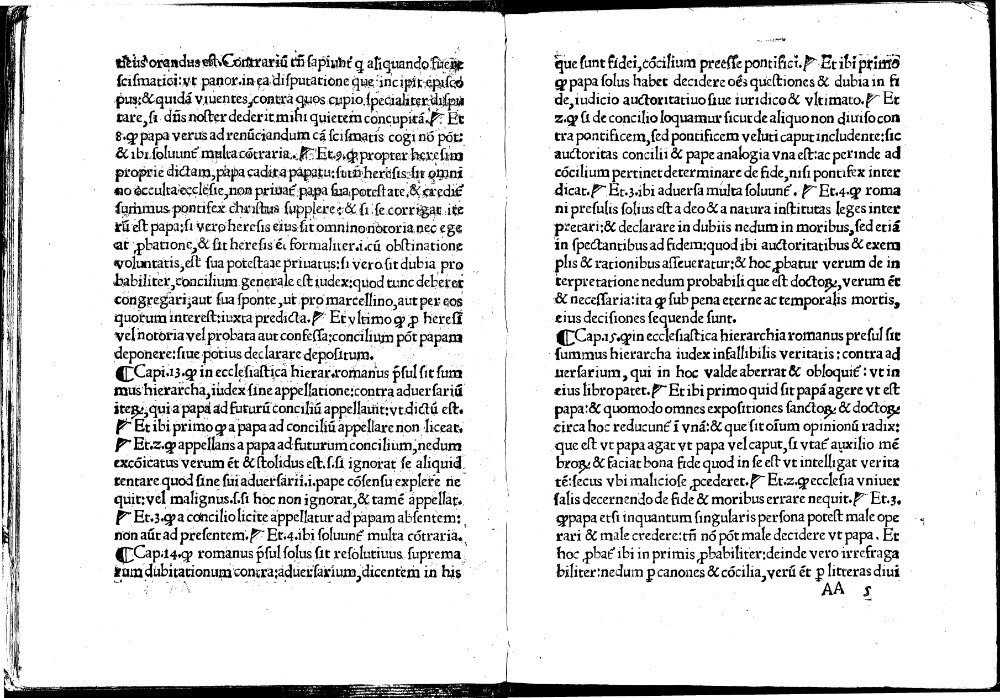 orandus est. Contrariū tn̄ sapiūt q̄ aliquando fuere
scismatici: vt panor. in ea disputatione que incipit episco
pus: & quidā viuentes, contra quos cupio specialiter dispu
tare, si dn̄s noster dederit mihi quietem concupitā. ¶ Et
8. ꝙ papa verus ad renūciandum cā scismatis cogi nō pōt:
& ibi soluunt̄ multa cōtraria. ¶ Et .9. ꝙ propter heresim
proprie dictam, papa cadit a papatu: sit tn̄ heresis: sit omni
no occulta ecclesie, non priuat̄ papa sua potestate, & credit̄
summus pontifex christus supplere: & si se corrigat ite
rū est papa: si vero heresis eius sit omnino notoria nec ege
at ꝓbatione, & sit heresis ē formaliter .i. cū obstinatione
voluntatis, est sua potestate priuatus: si vero sit dubia pro
babiliter, concilium generale est iudex: quod tunc deberet
congregari, aut sua sponte, ut pro marcellino, aut per eos
quorum interest: iuxta predicta. ¶ Et vltimo ꝙ ꝓ heresi
vel notoria vel probata aut confessa: concilium pōt papam
deponere: siue potius declarare depositum.
¶ Capi. 13. ꝙ in ecclesiastica hierar. romanus p̄sul sit sum
mus hierarcha, iudex sine appellatione: contra aduersariū
iteꝝ, qui a papa ad futurū conciliū appellauit: vt dictū est.
¶ Et ibi primo ꝙ a papa ad conciliū appellare non liceat.
¶ Et .2. ꝙ appellans a papa ad futurum concilium, nedum
excōicatus verum ēt & stolidus est. s. si ignorat se aliquid
tentare quod sine sui aduersarii .i. pape cōsensu explere ne
quit: vel malignus .s. si hoc non ignorat, & tamē appellat.
¶ Et .3. ꝙ a concilio licite appellatur ad papam absentem:
non aūt ad presentem. ¶ Et .4. ibi soluunt̄ multa cōtraria.
¶ Cap. 14. ꝙ romanus p̄sul solus sit resolutiuus suprema
rum dubitationum contra: aduersarium, dicentem in his
que sunt fidei, cōcilium preesse pontifici. ¶ Et ibi primo
ꝙ papa solus habet decidere oēs questiones & dubia in fi
de, iudicio auctoritatiuo siue iuridico & vltimato. ¶ Et
2. ꝙ si de concilio loquamur sicut de aliquo non diuiso con
tra pontificem, sed pontificem veluti caput includente: sic
auctoritas concilii & pape analogia vna est: ac perinde ad
cōcilium pertinet determinare de fide, nisi pontifex inter
dicat. ¶ Et .3. ibi aduersa multa soluunt̄. ¶ Et .4. ꝙ roma
ni presulis solius est a deo & a natura institutas leges inter
pretari: & declarare in dubiis nedum in moribus, sed etiā
in spectantibus ad fidem: quod ibi auctoritatibus & exem
plis & rationibus asseueratur: & hoc ꝓbatur verum de in
terpretatione nedum probabili que est doctoꝝ, verum ēt
& necessaria: ita ꝙ sub pena eterne ac temporalis mortis,
eius decisiones sequende sunt.
¶ Cap. 15. ꝙ in ecclesiastica hierarchia romanus presul sit
summus hierarcha iudex infallibilis veritatis: contra ad
uersarium, qui in hoc valde aberrat & obloquit̄: vt in
eius libro patet. ¶ Et ibi primo quid sit papā agere vt est
papa: & quomodo omnes expositiones sanctoꝝ & doctoꝝ
circa hoc reducunt̄ ī vnā: & que sit oīum opinionū radix:
que est vt papa agat vt papa vel caput, si vtat̄ auxilio mē
broꝝ & faciat bona fide quod in se est vt intelligat verita
tē: secus vbi maliciose ꝓcederet. ¶ Et .2. ꝙ ecclesia vniuer
salis decernendo de fide & moribus errare nequit. ¶ Et .3.
ꝙ papa etsi inquantum singularis persona potest male ope
rari & male credere: tn̄ nō pōt male decidere vt papa. Et
hoc ꝓbat̄ ibi in primis ꝓbabiliter: deinde vero irrefraga
biliter: nedum ꝑ canones & cōcilia, verū ēt ꝑ litteras diui
AA 5